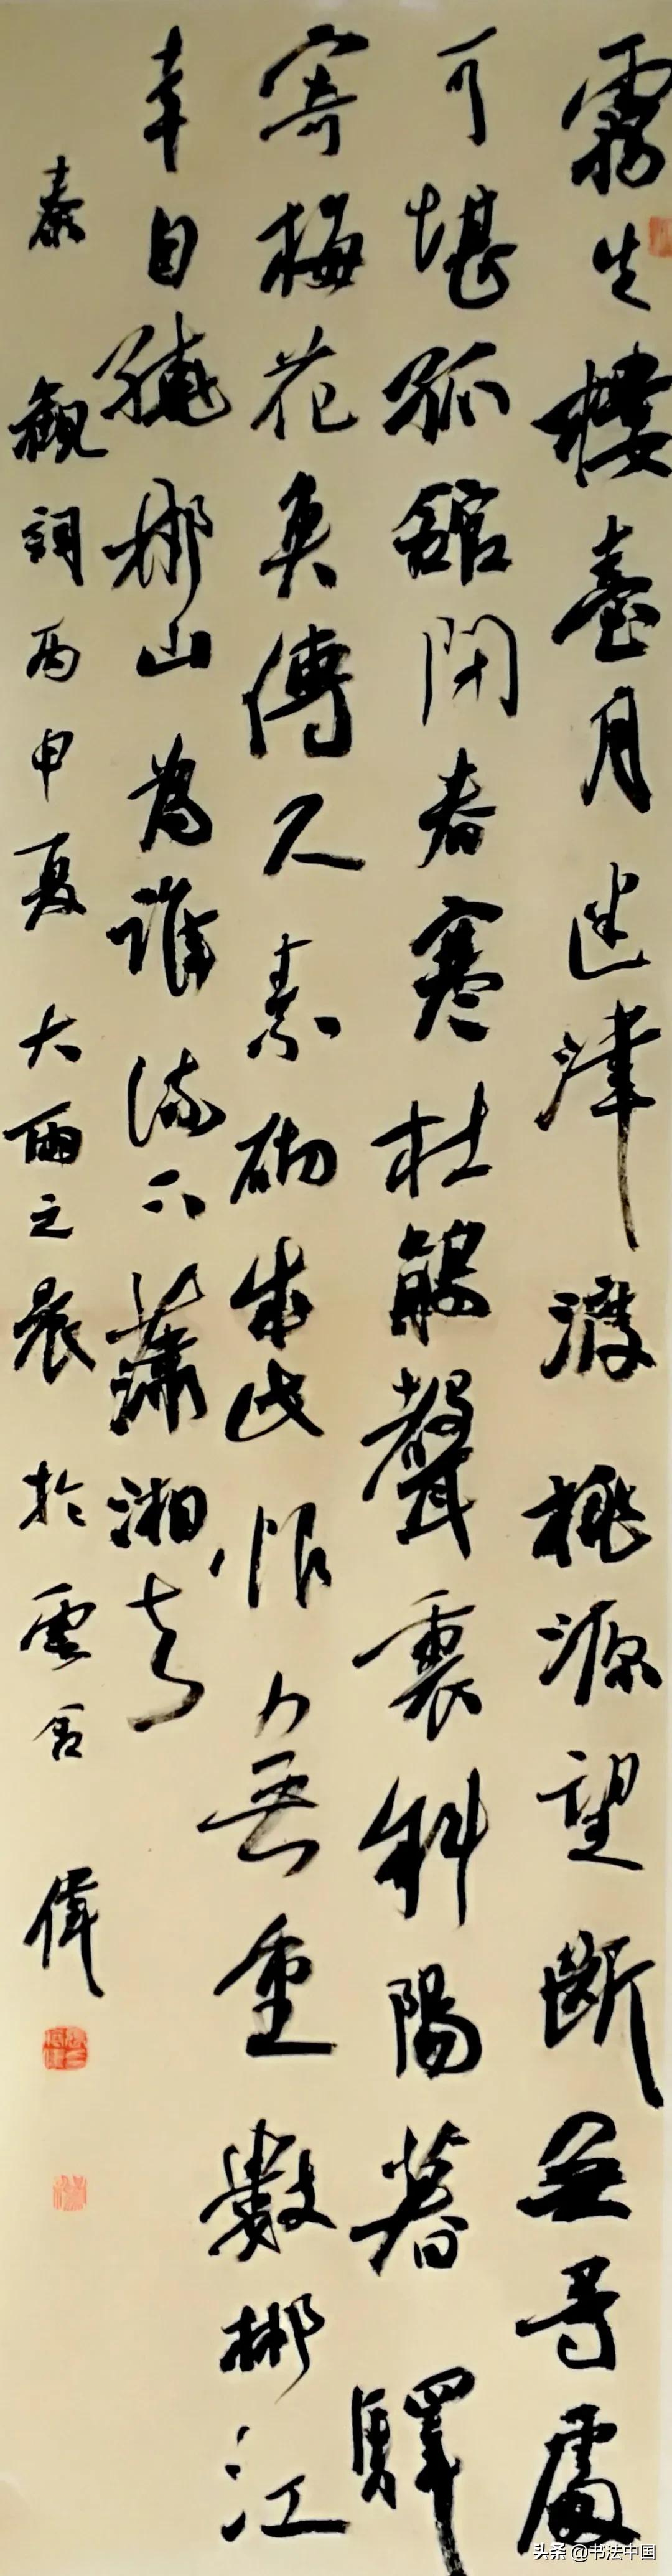 霧失樓臺月迷津渡桃源望斷無尋處
可堪孤館閉春寒杜鵑聲裏斜陽暮驛
寄梅花魚傳尺素砌成此恨無重數郴江
幸自繞郴山為誰流下瀟湘去
秦觀詞丙申夏大雨之晨於雲舍偉
头条 @书法中国